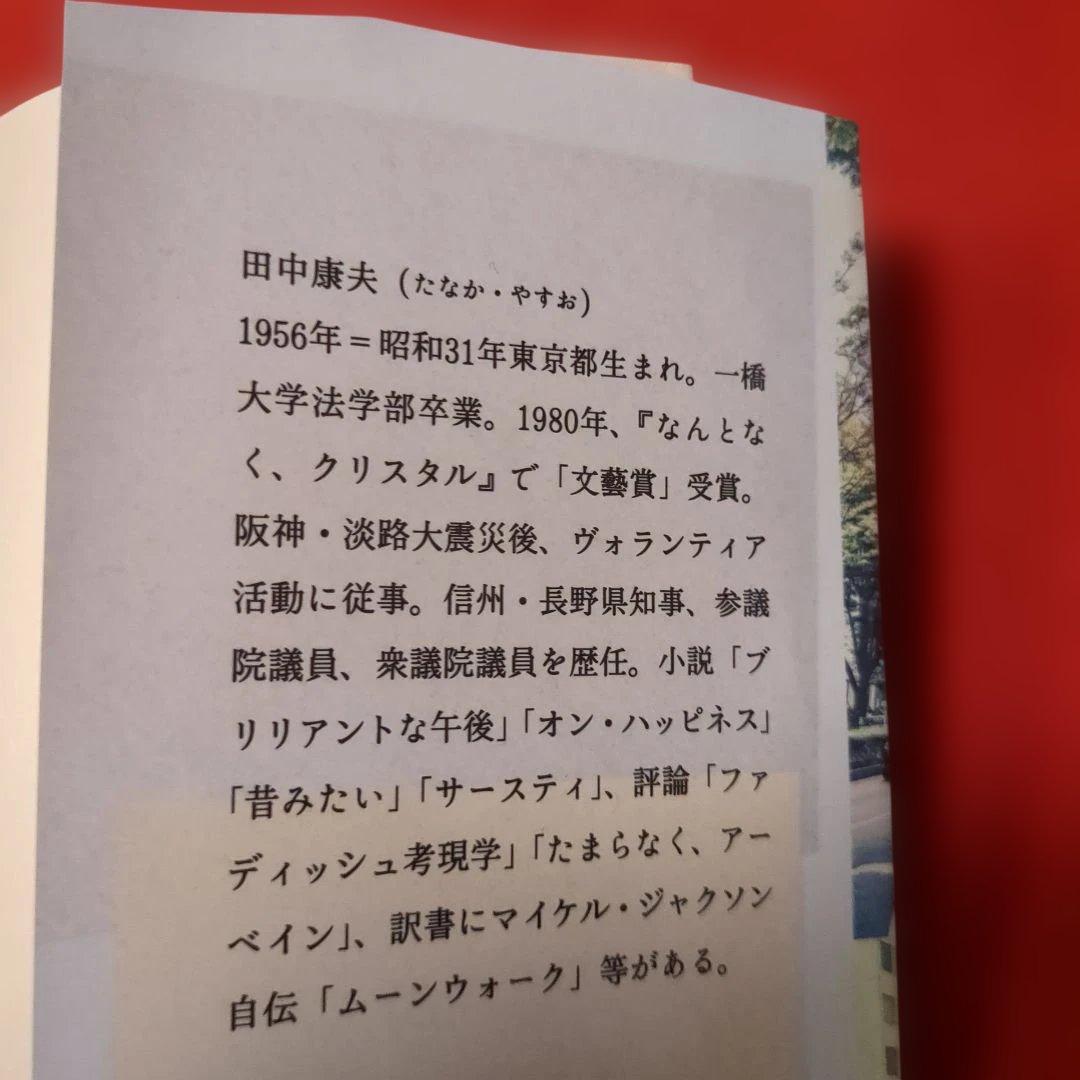 田中康夫（たなか・やすお）
1956年＝昭和31年東京都生まれ。一橋
大学法学部卒業。1980年、『なんとな
く、クリスタル』で「文藝賞」受賞。
阪神・淡路大震災後、ヴォランティア
活動に従事。信州・長野県知事、参議
院議員、衆議院議員を歴任。小説「ブ
リリアントな午後」「オン・ハッピネス」
「昔みたい」「サースティ」、評論「ファ
ディッシュ考現学」「たまらなく、アー
ベイン」、訳書にマイケル・ジャクソン
自伝「ムーンウォーク」等がある。